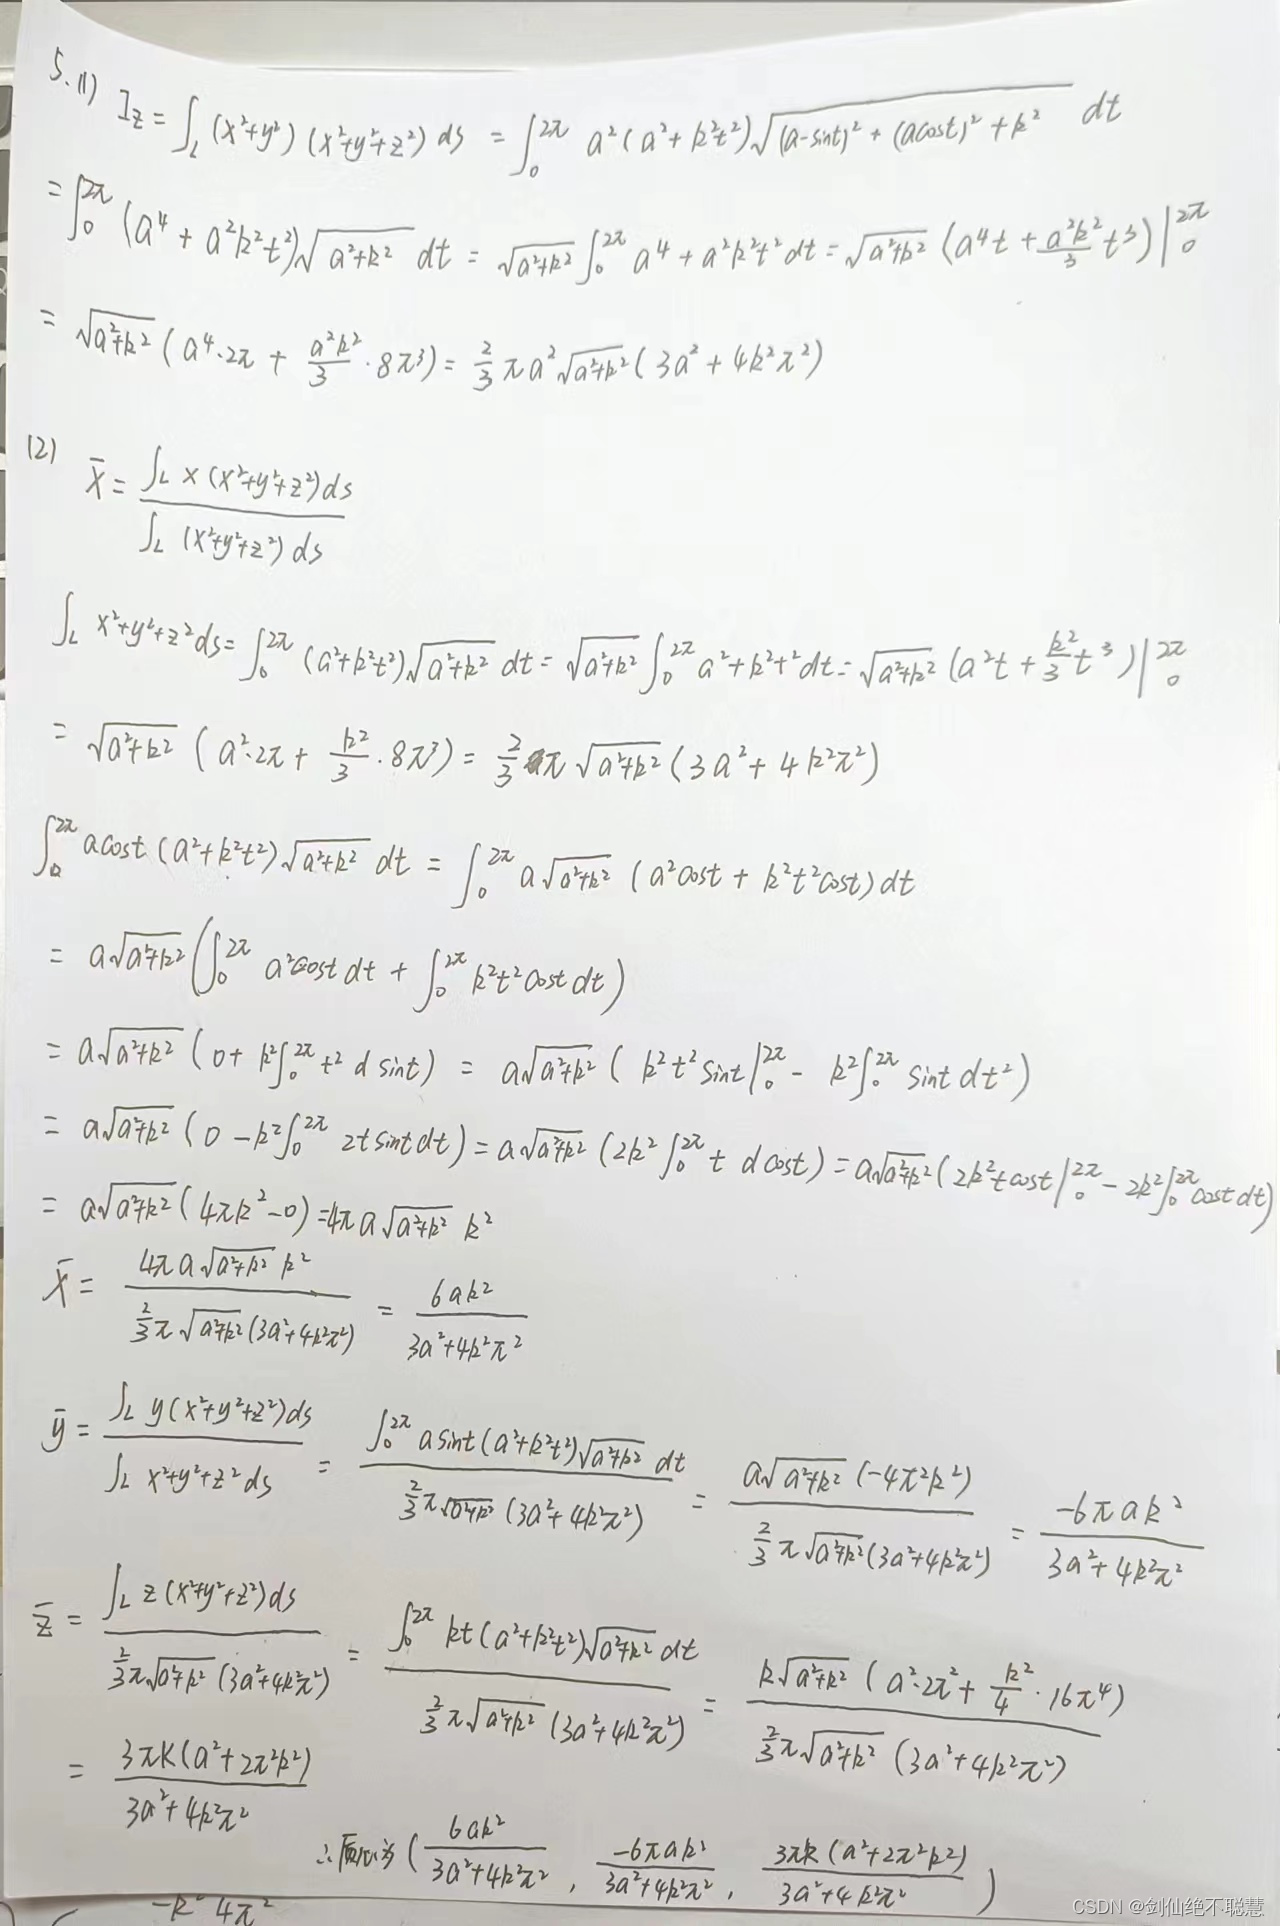 5.(1) I_z = ∫_L (x²+y²)(x²+y²+z²) ds = ∫_0^{2π} a²(a²+k²t²)√((a-sint)²+(acost)²+k²) dt
= ∫_0^{2π} (a⁴+a²k²t²)√(a²+k²) dt = √(a²+k²) ∫_0^{2π} a⁴+a²k²t² dt = √(a²+k²) (a⁴t + a²k²/3 t³)|_0^{2π}
= √(a²+k²) (a⁴·2π + a²k²/3 · 8π³) = 2/3 πa²√(a²+k²) (3a²+4k²π²)
(2) x̄ = ∫_L x(x²+y²+z²)ds / ∫_L (x²+y²+z²)ds
∫_L x²+y²+z² ds = ∫_0^{2π} (a²+k²t²)√(a²+k²) dt = √(a²+k²) ∫_0^{2π} a²+k²t² dt = √(a²+k²) (a²t + k²/3 t³)|_0^{2π}
= √(a²+k²) (a²·2π + k²/3 · 8π³) = 2/3 π √(a²+k²) (3a²+4k²π²)
∫_0^{2π} acost (a²+k²t²)√(a²+k²) dt = ∫_0^{2π} a√(a²+k²) (a²cost + k²t²cost) dt
= a√(a²+k²) (∫_0^{2π} a²cost dt + ∫_0^{2π} k²t²cost dt)
= a√(a²+k²) (0 + k²∫_0^{2π} t² d sint) = a√(a²+k²) (k²t²sint|_0^{2π} - k²∫_0^{2π} sint dt²)
= a√(a²+k²) (0 - k²∫_0^{2π} 2tsint dt) = a√(a²+k²) (2k²∫_0^{2π} t d cost) = a√(a²+k²) (2k²tcost|_0^{2π} - 2k²∫_0^{2π} cost dt)
= a√(a²+k²) (4πk²-0) = 4πa√(a²+k²) k²
x̄ = 4πa√(a²+k²) k² / (2/3 π√(a²+k²) (3a²+4k²π²)) = 6ak² / (3a²+4k²π²)
ȳ = ∫_L y(x²+y²+z²)ds / ∫_L x²+y²+z² ds = ∫_0^{2π} asint(a²+k²t²)√(a²+k²) dt / (2/3 π√(a²+k²) (3a²+4k²π²)) = a√(a²+k²) (-4π²k²) / (2/3 π√(a²+k²) (3a²+4k²π²)) = -6πak² / (3a²+4k²π²)
z̄ = ∫_L z(x²+y²+z²)ds / (2/3 π√(a²+k²) (3a²+4k²π²)) = ∫_0^{2π} kt(a²+k²t²)√(a²+k²) dt / (2/3 π√(a²+k²) (3a²+4k²π²)) = k√(a²+k²) (a²·2π² + k²/4 · 16π⁴) / (2/3 π√(a²+k²) (3a²+4k²π²))
= 3πk(a²+2π²k²) / (3a²+4k²π²)
∴质心为 (6ak² / (3a²+4k²π²), -6πak² / (3a²+4k²π²), 3πk(a²+2π²k²) / (3a²+4k²π²))
-k² 4π²
CSDN @剑仙绝不聪慧